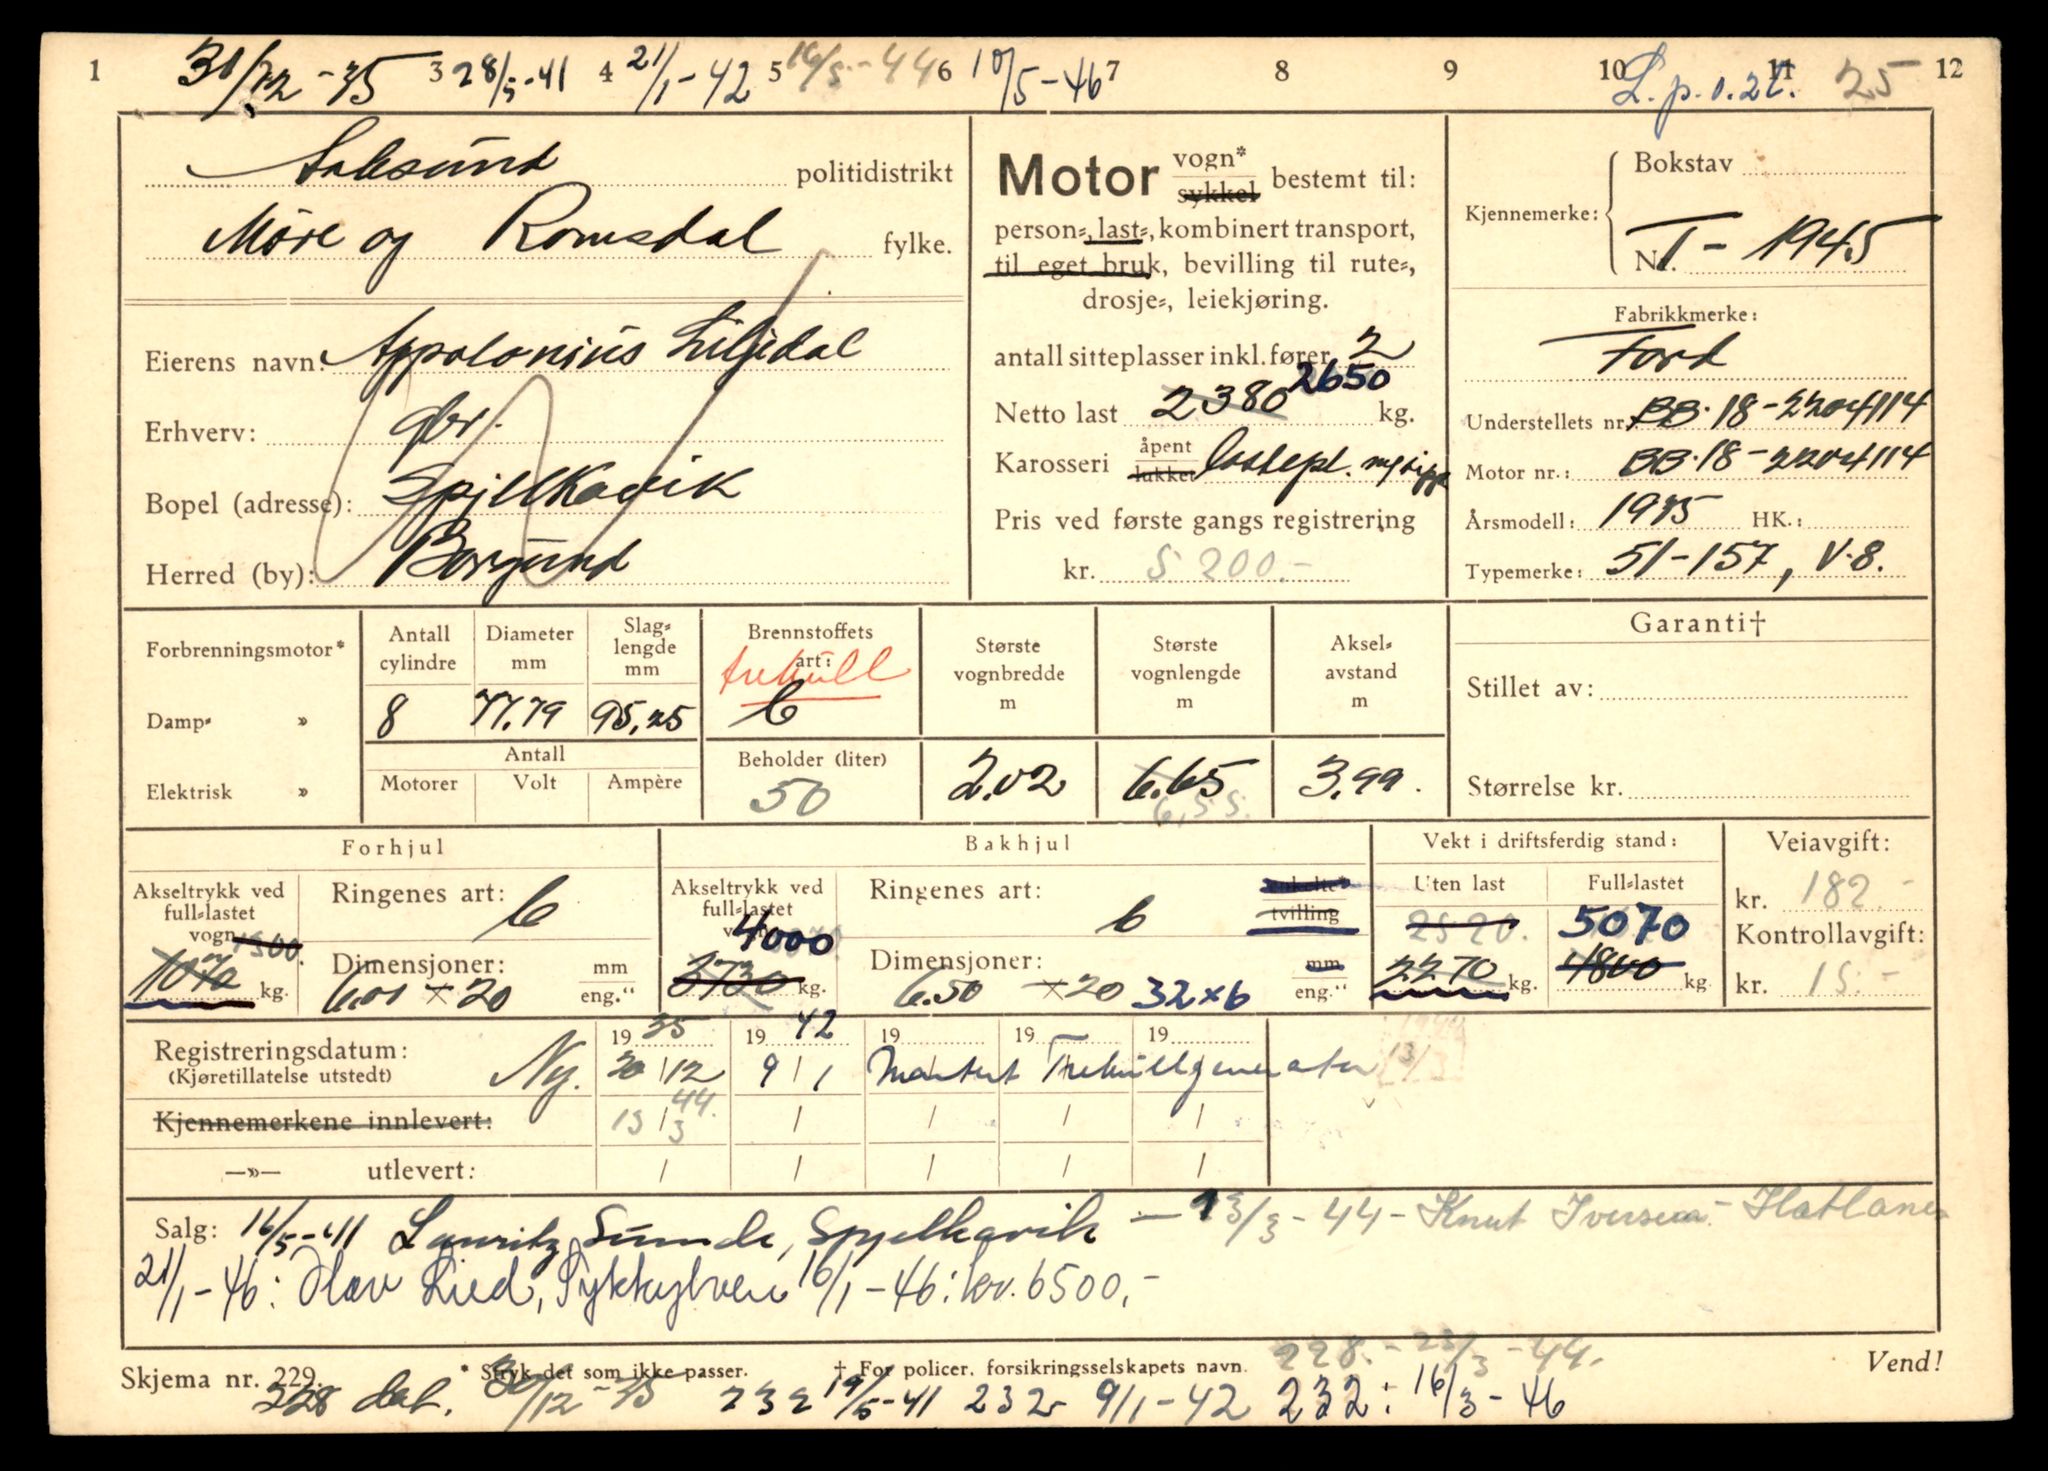 1 31/12 - 35 3 28/5 - 41 4 21/1 - 42 5 16/5 - 44 6 10/5 - 46 7 8 9 10 11 12
L. p. o. 2t. 25
Aalesund politidistrikt
Møre og Romsdal fylke.
Eierens navn: Appolonius Liljedal
Erhverv: gbr.
Bopel (adresse): Spjelkavik
Herred (by): Borgund
Motor vogn* sykkel bestemt til:
person=, last=, kombinert transport,
til eget bruk, bevilling til rute=,
drosje=, leiekjøring.
antall sitteplasser inkl. fører 2
Netto last 2380 2650 kg.
Karosseri åpent lukket lastepl. m/tipp
Pris ved første gangs registrering
kr. 5 200.-
Kjennemerke: Bokstav
Nr. T - 1945
Fabrikkmerke:
Ford
Understellets nr. BB-18-2204114
Motor nr.: BB-18-2204114
Årsmodell: 1935 HK.:
Typemerke: 51-157, V-8.
Forbrenningsmotor*
Damp= »
Elektrisk »
Antall cylindre 8
Diameter mm 77.79
Slag= lengde mm 95,25
Antall
Motorer Volt Ampère
Brennstoffets art: trekull
b
Beholder (liter) 50
Største vognbredde m 2.02
Største vognlengde m 6.65 6,55.
Aksel= avstand m 3.99.
Garanti†
Stillet av:
Størrelse kr.
Forhjul
Akseltrykk ved full=lastet vogn 1300. 1070 kg.
Ringenes art: b
Dimensjoner: 6.00 × 20 mm eng."
Bakhjul
Akseltrykk ved full=lastet vogn 4000 3730 kg.
Ringenes art: b enkelte* tvilling
Dimensjoner: 6.50 × 20 32×6 mm eng."
Vekt i driftsferdig stand:
Uten last 2520. 2270 kg.
Full=lastet 5070 4800 kg.
Veiavgift:
kr. 182.-
Kontrollavgift:
kr. 15.-
Registreringsdatum:
(Kjøretillatelse utstedt) Ny. 19 35 20/12 19 42 9/1 19 19 19 Montert Trekullgenerator 13/3
Kjennemerkene innlevert: 13/3 44.
—»— utlevert:
Salg: 16/5-41 Lauritz Sunde, Spjelkavik — 13/3 - 44 - Knut Iversen - Flatlanes
21/1 - 46: Olav Lied, Sykkylven 16/1 - 46: kr. 6500,-
Skjema nr. 229. * Stryk det som ikke passer. † For policer, forsikringsselskapets navn. 228. - 23/3 - 44. Vend!
228 dat. 30/12 - 35 232 19/5 - 41 232 9/1 - 42 232: 16/3 - 46